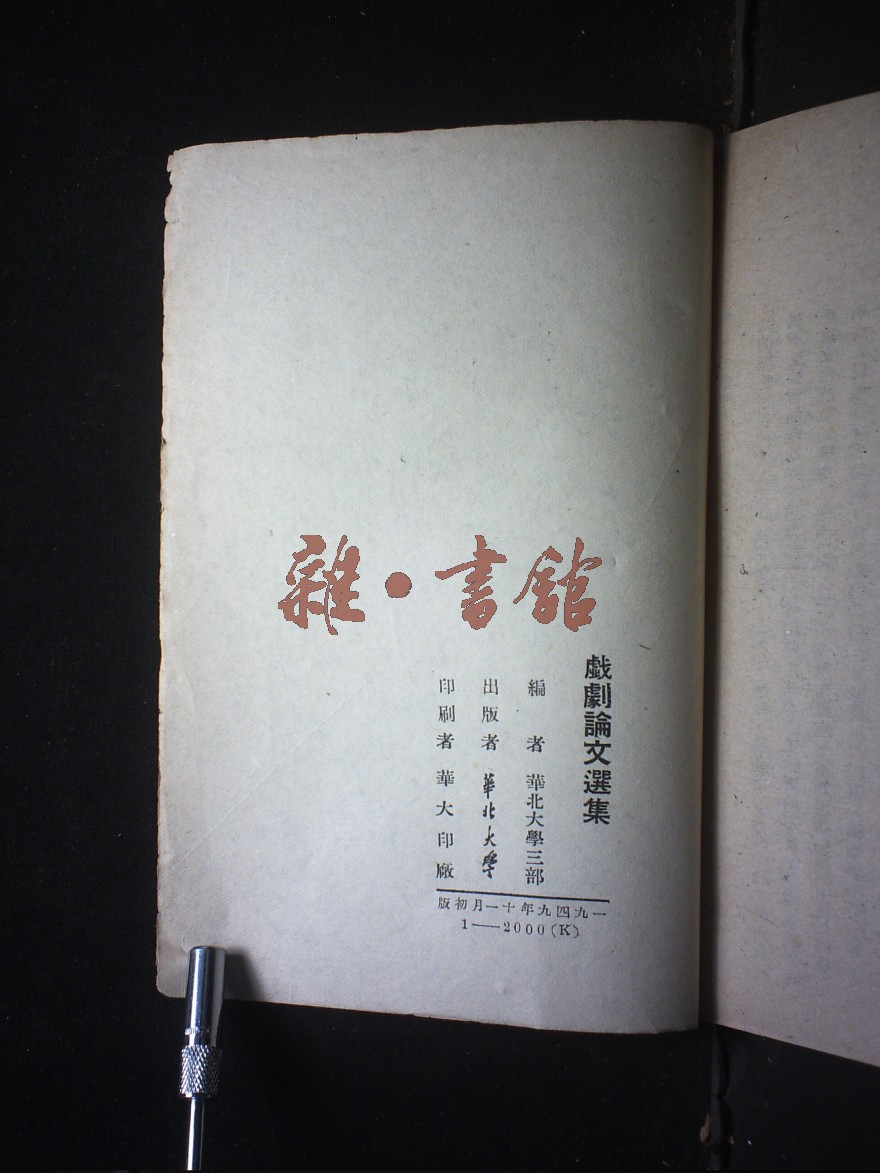 雜•書館
戯劇論文選集
編者 華北大學三部
出版者 華北大學
印刷者 華大印廠
一九四九年十一月初版
1——2000(K)